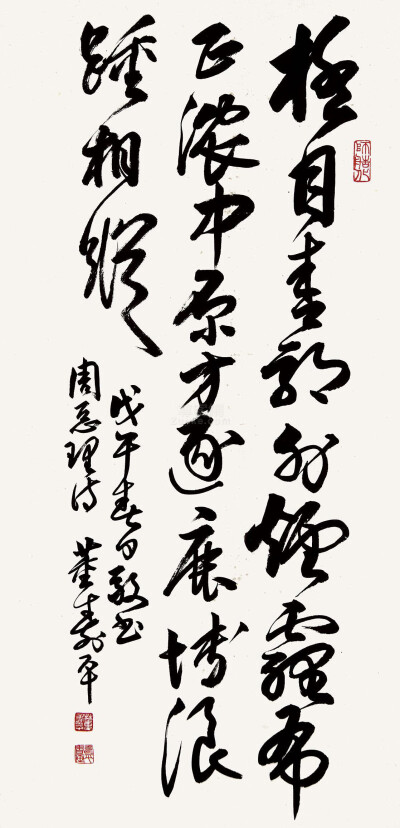 極目青郊外煙霾布
正濃中原方逐鹿博浪
踵相蹤
戊午春日敬书
周总理诗 董寿平